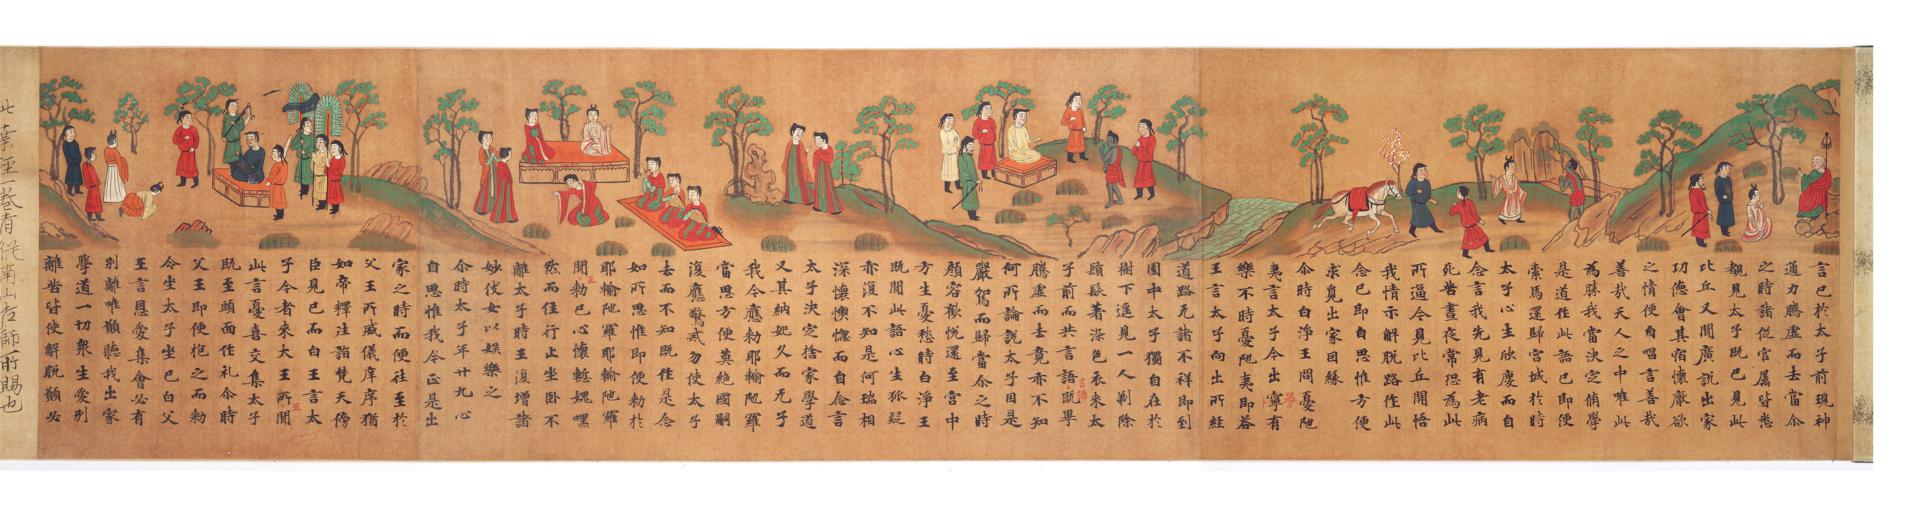 言已於太子前現神
通力騰虚而去當尒
之時諸従官属皆悉
覩見太子既已見此
比丘又聞廣說出家
功徳會其宿懐猒欲
之情便自唱言善哉
善哉天人之中唯此
為勝我當決定脩學
是道作此語已即便
索馬還歸宮城於時
太子心生欣慶而自
念言我先見有老病
死苦晝夜常恐為此
所逼今見比丘開悟
我情示解脱路作此
念已即自思惟方便
求覓出家因縁
尒時白淨王問憂陁
夷言太子今出寧有
樂不時憂陁夷即荅
王言太子向出所経
道路无諸不祥即到
園中太子獨自在於
樹下遥見一人剃除
鬚髪著染色衣来太
子前而共言語既畢
騰虚而去竟亦不知
何所論說太子因是
嚴駕而歸當尒之時
顔容歡悦還至宮中
方生憂愁時白淨王
既聞此語心生狐疑
亦復不知是何瑞相
深懐懊惱而自念言
太子決定捨家學道
又其納妃久而无子
我今應勑耶輸陁羅
當思方便莫絶國嗣
復應警戒勿使太子
去而不知既作是念
如所思惟即便勑於
耶輸陁羅耶輸陁羅
聞王勑已心懐慙愧嘿
然而住行止坐臥不
離太子時王復增諸
妙伎女以娯樂之
尒時太子年廿九心
自思惟我今正是出
家之時而便往至於
父王所威儀庠序猶
如帝釋往詣梵天傍
臣見已而白王言太
子今者来大王所王聞
此言憂喜交集太子
既至頭面作礼尒時
父王即便抱之而勑
令坐太子坐已白父
王言恩愛集會必有
別離唯願聽我出家
學道一切衆生愛別
離苦皆使解脱願必